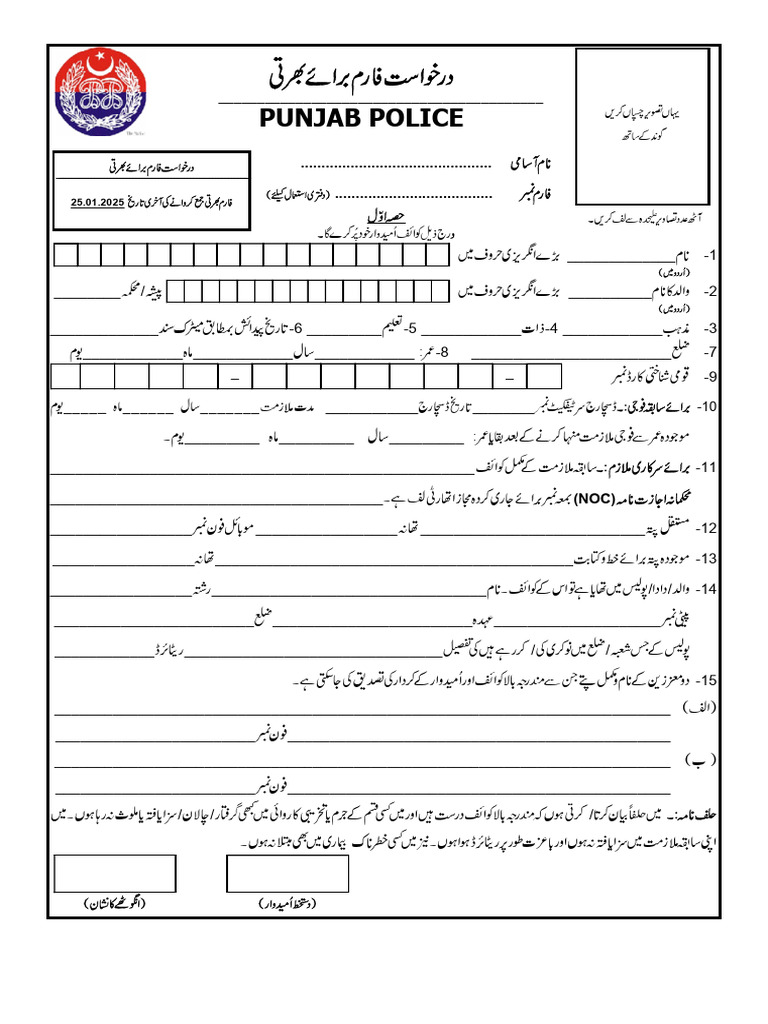 درخواست فارم برائے بھرتی
PUNJAB POLICE
یہاں تصویر چسپاں کریں
گوند کے ساتھ
نام آسامی ............................................
درخواست فارم برائے بھرتی
فارم نمبر ..................................... (دفتری استعمال کیلئے)
فارم بھرتی جمع کروانے کی آخری تاریخ 25.01.2025
آٹھ عدد تصاویر علیحدہ سے لف کریں۔
حصہ اوّل
درج ذیل کوائف اُمیدوار خود پُر کرے گا۔
1- نام ______________ بڑے انگریزی حروف میں
(اُردو میں)
2- والد کا نام ___________ بڑے انگریزی حروف میں پیشہ / محکمہ ____________
(اُردو میں)
3- مذہب ____________ 4- ذات ____________ 5- تعلیم _________ 6- تاریخ پیدائش بمطابق میٹرک سند _________________
7- ضلع ________________________ 8- عمر: ____________ سال ____________ ماہ ____________ یوم
9- قومی شناختی کارڈ نمبر – –
10- برائے سابقہ فوجی:۔ ڈسچارج سرٹیفکیٹ نمبر ________ تاریخ ڈسچارج ____________ مدت ملازمت _______ سال ______ ماہ _____ یوم
موجودہ عمر سے فوجی ملازمت منہا کرنے کے بعد بقایا عمر: _________ سال _________ ماہ _________ یوم۔
11- برائے سرکاری ملازم:۔ سابقہ ملازمت کے مکمل کوائف ______________________________
محکمانہ اجازت نامہ (NOC) بمعہ نمبر برائے جاری کردہ مجاز اتھارٹی لف ہے۔ ______________________________
12- مستقل پتہ ______________________ تھانہ _________________ موبائل فون نمبر _________________
13- موجودہ پتہ برائے خط و کتابت ______________________________ تھانہ _________________
14- والد / دادا / پولیس میں تھا یا ہے تو اس کے کوائف۔ نام ______________________________ رشتہ _________________
پیٹی نمبر _________________ عہدہ ______________________ ضلع ______________________
پولیس کے جس شعبہ / ضلع میں نوکری کی / کر رہے ہیں کی تفصیل ______________________________ ریٹائرڈ _________________
15- دو معززین کے نام و مکمل پتے جن سے مندرجہ بالا کوائف اور اُمیدوار کے کردار کی تصدیق کی جا سکتی ہے۔
(الف) ____________________________________________________________
______________________________ فون نمبر ______________________
(ب) ____________________________________________________________
______________________________ فون نمبر ______________________
حلف نامہ:۔ میں حلفاً بیان کرتا / کرتی ہوں کہ مندرجہ بالا کوائف درست ہیں اور میں کسی قسم کے جرم یا تخریبی کاروائی میں کبھی گرفتار / چالان / سزایافتہ یا ملوث نہ رہا ہوں۔ میں
اپنی سابقہ ملازمت میں سزایافتہ نہ ہوں اور باعزت طور پر ریٹائرڈ ہوا ہوں۔ نیز میں کسی خطرناک بیماری میں بھی مبتلا نہ ہوں۔
(دستخط اُمیدوار) (انگوٹھے کا نشان)